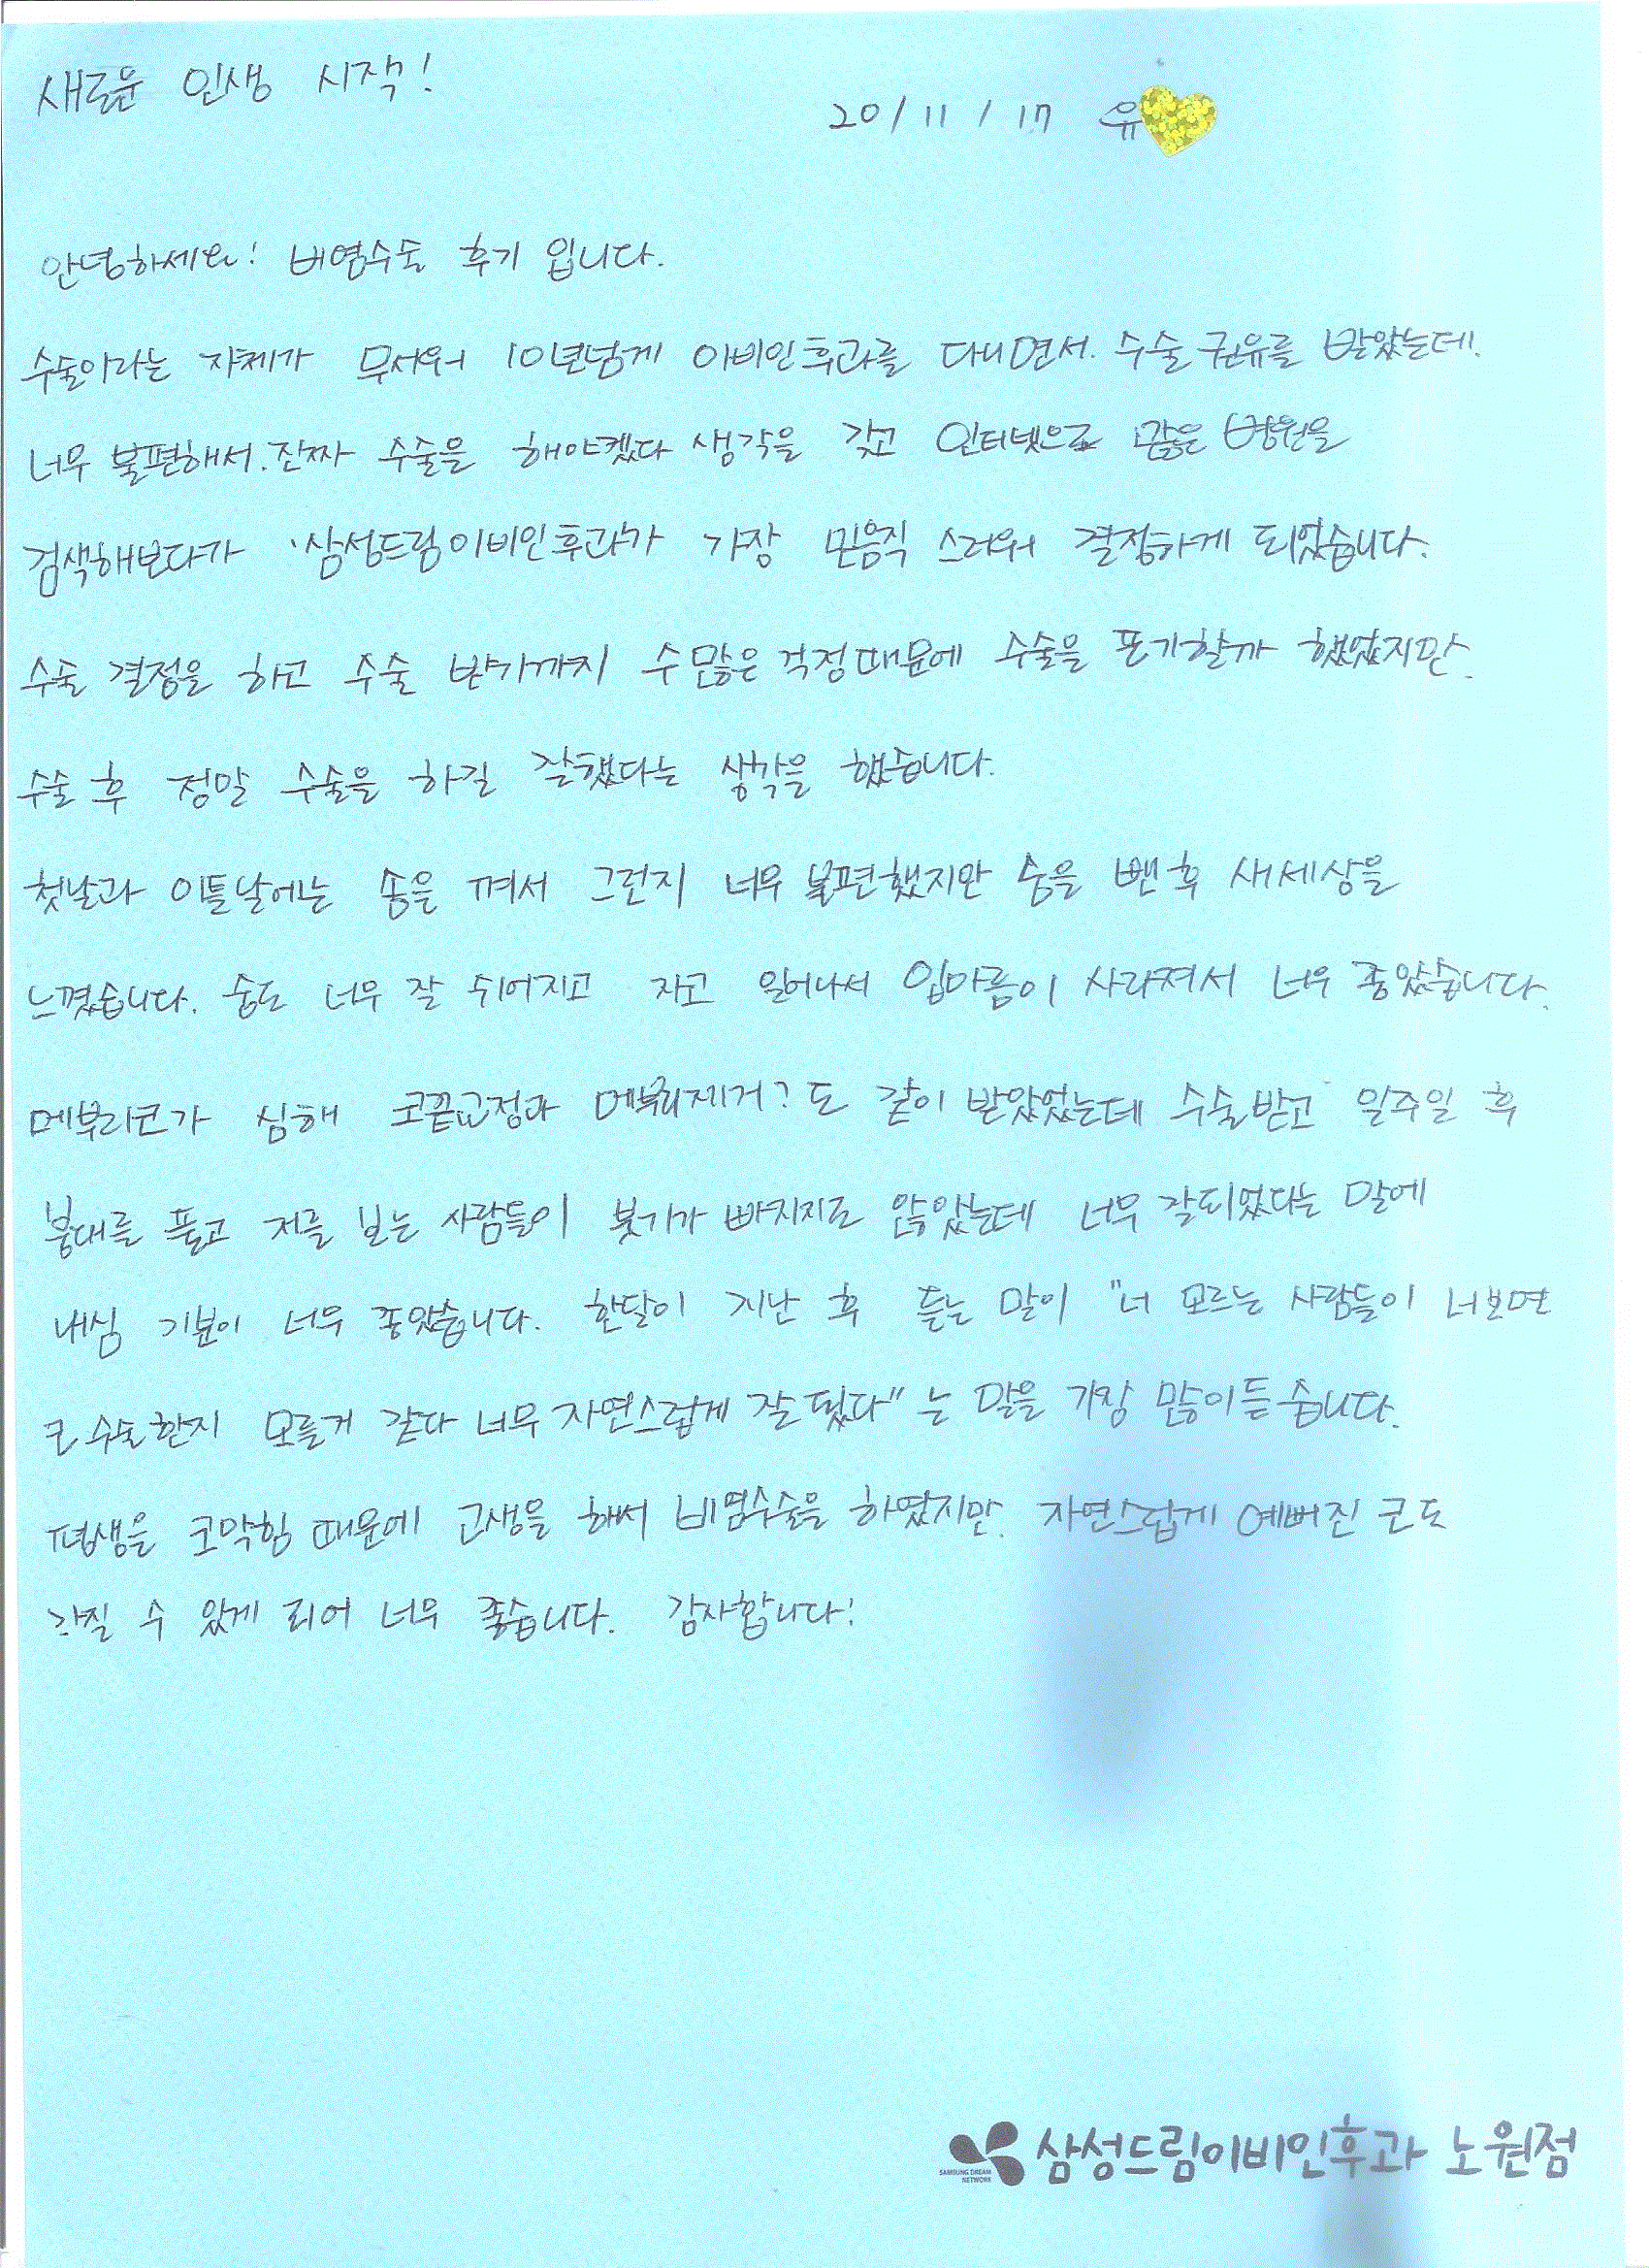 새로운 인생 시작!
20/11/17 유
안녕하세요! 비염수술 후기 입니다.
수술이라는 자체가 무서워 10년넘게 이비인후과를 다니면서. 수술 권유를 받았는데.
너무 불편해서. 진짜 수술을 해야겠다 생각을 갖고 인터넷으로 많은 병원을
검색해보다가 '삼성드림이비인후과가 가장 믿음직 스러워 결정하게 되었습니다.
수술 결정을 하고 수술 받기까지 수많은 걱정때문에 수술을 포기할까 했었지만.
수술 후 정말 수술을 하길 잘했다는 생각을 했습니다.
첫날과 이틀날에는 솜을 껴서 그런지 너무 불편했지만 솜을 뺀 후 새세상을
느꼈습니다. 숨도 너무 잘 쉬어지고 자고 일어나서 입마름이 사라져서 너무 좋았습니다.
메부리코가 심해 코끝교정과 메부리제거? 도 같이 받았었는데 수술받고 일주일 후
붕대를 풀고 저를 보는 사람들이 붓기가 빠지지도 않았는데 너무 잘되었다는 말에
내심 기분이 너무 좋았습니다. 한달이 지난 후 듣는 말이 "너 모르는 사람들이 너보면
코 수술한지 모를거 같다 너무 자연스럽게 잘 됬다" 는 말을 가장 많이듣습니다.
평생을 코막힘 때문에 고생을 해서 비염수술을 하였지만. 자연스럽게 예뻐진 코도
가질 수 있게 되어 너무 좋습니다. 감사합니다!
SAMSUNG DREAM NETWORK 삼성드림이비인후과 노원점